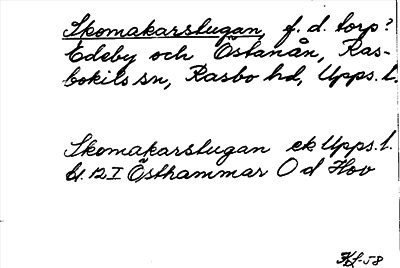 Skomakarstugan, f. d. torp?
Edeby och Östanån, Ras-
bokils sn, Rasbo hd, Upps. l.
Skomakarstugan ek Upps. l.
bl. 12 I Östhammar O d Hov
KL-58